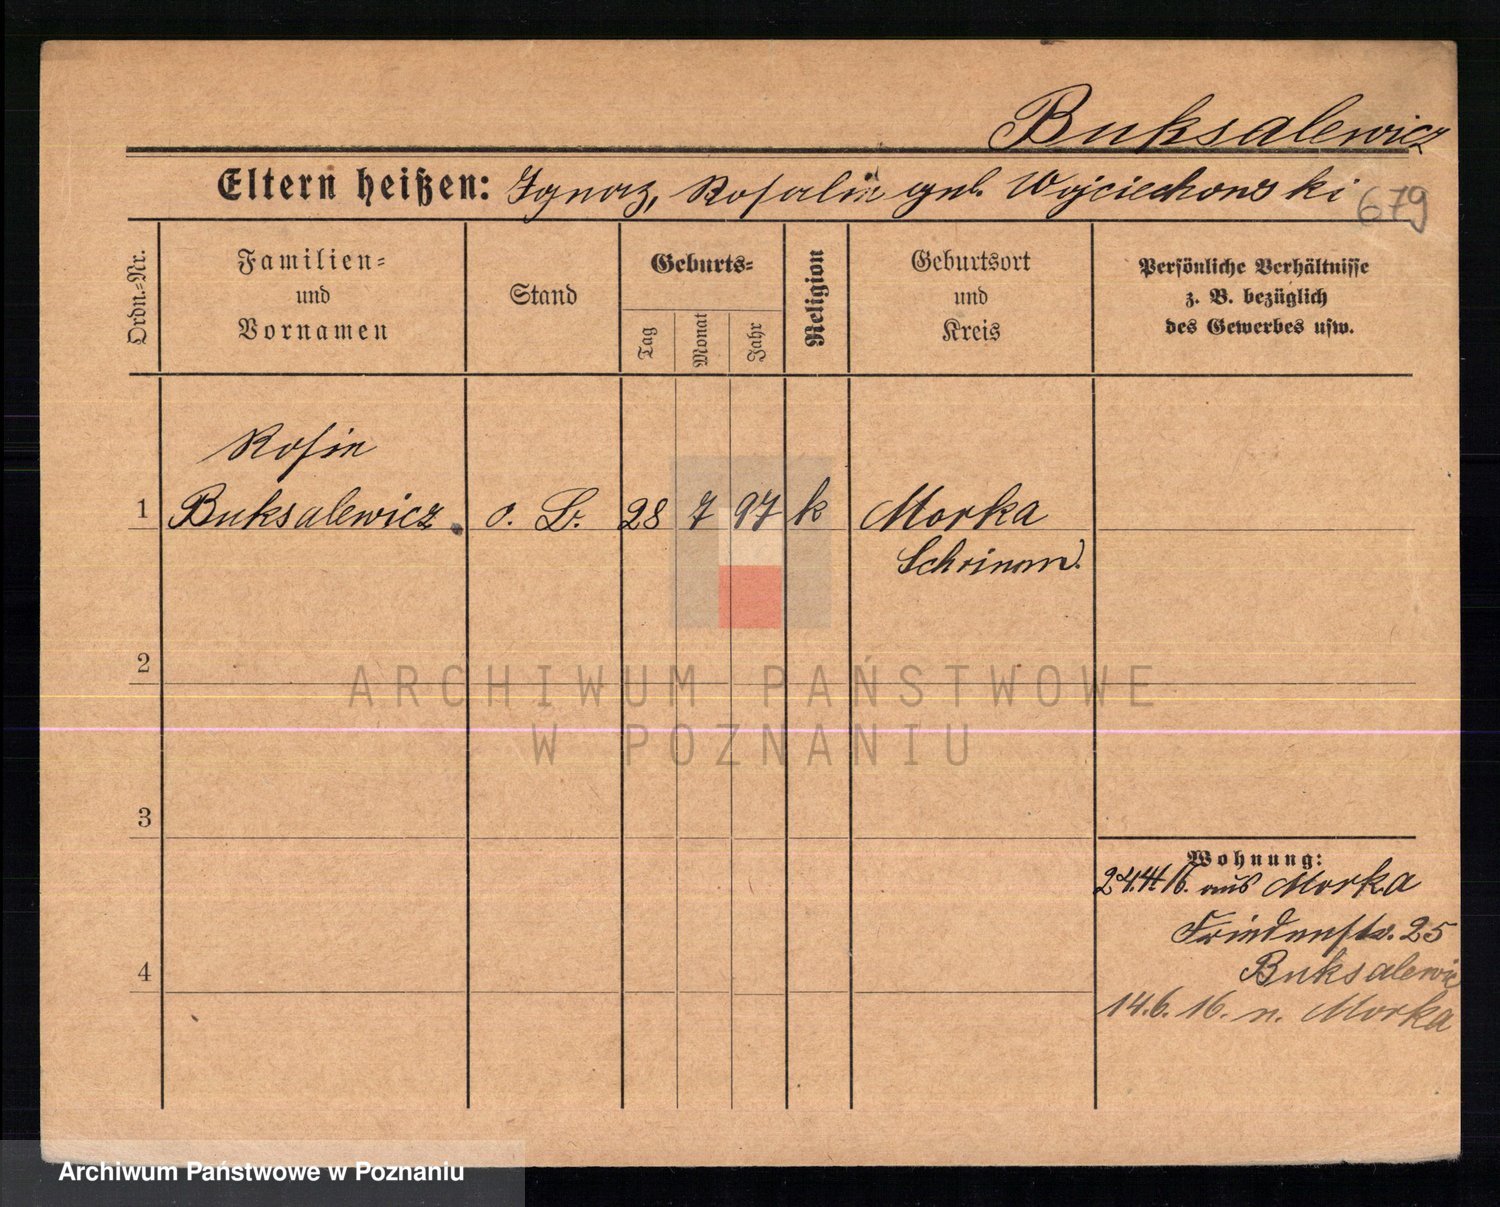 Buksalewicz
Eltern heißen: Ignaz, Rosalie geb. Wojciechowski
679
Ordn.=Nr.
Familien=
und
Vornamen
Stand
Geburts=
Tag
Monat
Jahr
Religion
Geburtsort
und
Kreis
Persönliche Verhältnisse
z. B. bezüglich
des Gewerbes usw.
Rosie
1 Buksalewicz o. B. 28 7 97 k Morka
Schrimm
2
ARCHIWUM PAŃSTWOWE
W POZNANIU
3
Wohnung:
24.4.16. aus Morka
Friedenstr. 25
4
Buksalewic
14.6.16. n. Morka
Archiwum Państwowe w Poznaniu